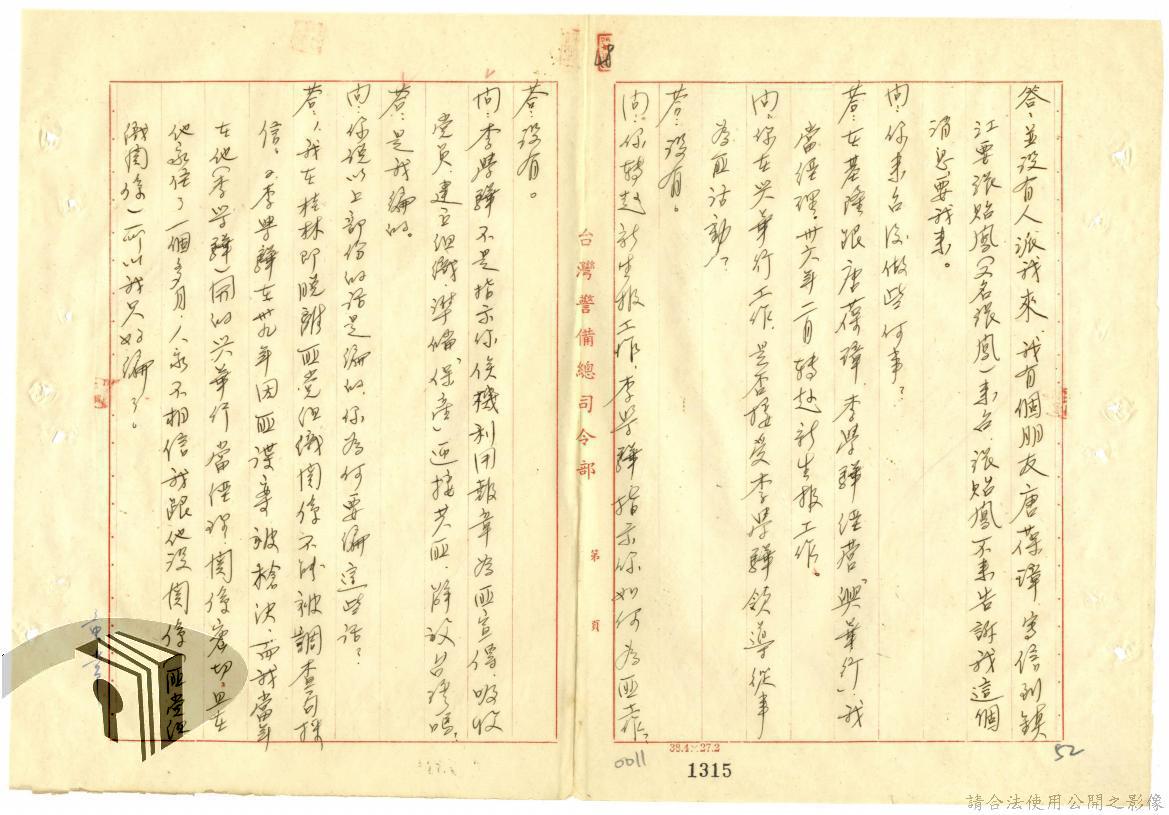 答：並沒有人派我來，我有個朋友唐葆璋，寫信到鎮
江要張貽鳳（又名張鳳）來台，張貽鳳不來告訴我這個
消息要我來。
問：你來台後做些何事？
答：在基隆跟唐葆璋，李學驊經營「興華行」，我
當經理。卅六年二月轉赴新生報工作。
問：你在興華行工作，是否接受李學驊領導從事
為匪活動？
答：沒有。
問：你轉赴新生報工作，李學驊指示你如何為匪工作？
答：沒有。
問：李學驊不是指示你俟機利用報章為匪宣傳，吸收
黨員，建立組織，準備「保產」迎接共匪，解放台灣嗎？
答：是我編的。
問：你說以上部份的話是編的，你為何要編這些話？
答：1我在桂林即脫離匪黨組織關係不為被調查局採
信。2李學驊在卅九年因匪諜案被槍決，而我當年
在他（李學驊）開的興華行當經理，關係密切，且在
他家住了一個多月，人家不相信我跟他沒關係（匪黨組
織關係），所以我只好編了。
台灣警備總司令部
第 頁
38.4×27.2
1315
0011
52
請合法使用公開之影像